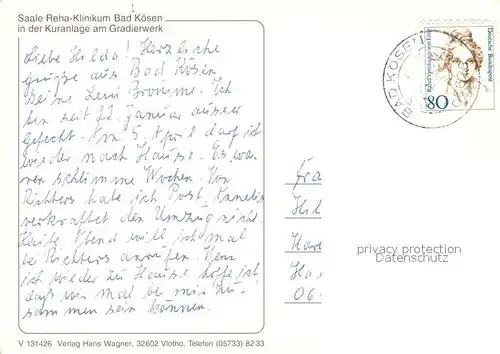 Saale Reha-Klinikum Bad Kösen
in der Kuranlage am Gradierwerk
Liebe Hilda! Herzliche
grüße aus Bad Kösen
Deine Leni Bromme. Ich
bin seit 22. Januar ausser
gefecht. Am 5. April darf ich
wieder nach Hause. Es wa-
ren schlimme Wochen. Von
Richters habe ich Post, Annelis
verkraftet den Umzug nicht.
Heute Abend will ich mal
bei Richters anrufen. Wenn
ich wieder zu Hause hoffe ich
daß wir mal bei mir zu-
sammen sein können.
V 131426 Verlag Hans Wagner, 32602 Vlotho. Telefon (05733) 8233
BAD KÖSEN
Deutsche Bundespost
Rahel Varnhagen von Ense
80
Fra
Hil
Ha
06
privacy protection
Datenschutz